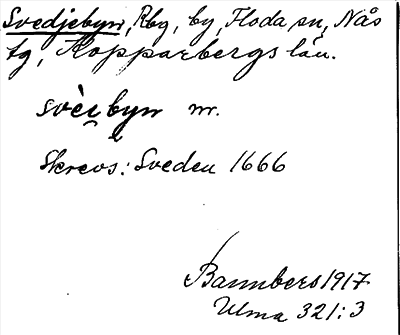 Svedjebyn, Rbg, by, Floda sn, Nås
tg, Kopparbergs län.
svèr̯byn nr.
Skrevs: Sveden 1666
Bannbers 1917
Ulma 321:3